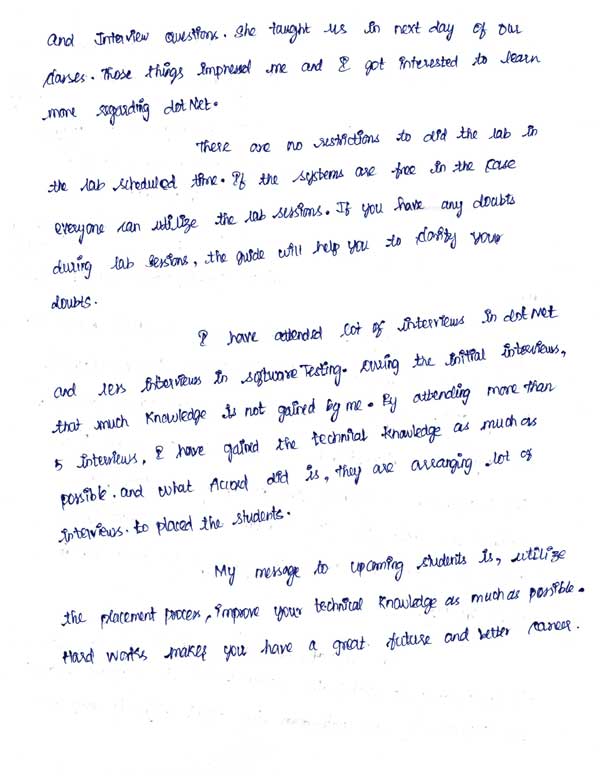 and Interview Questions. She taught us in next day of our
classes. Those things impressed me and I got interested to learn
more regarding dot Net.
There are no restrictions to did the lab in
the lab scheduled time. If the systems are free in the case
everyone can utilize the lab sessions. If you have any doubts
during lab sessions, the guide will help you to clarify your
doubts.
I have attended lot of interviews in dot Net
and less interviews in software Testing. During the initial interviews,
that much knowledge is not gained by me. By attending more than
5 interviews, I have gained the technical knowledge as much as
possible. and what Accord did is, they are arranging lot of
interviews. to placed the students.
My message to upcoming students is, utilize
the placement process, improve your technical knowledge as much as possible.
Hard works makes you have a great future and better career.